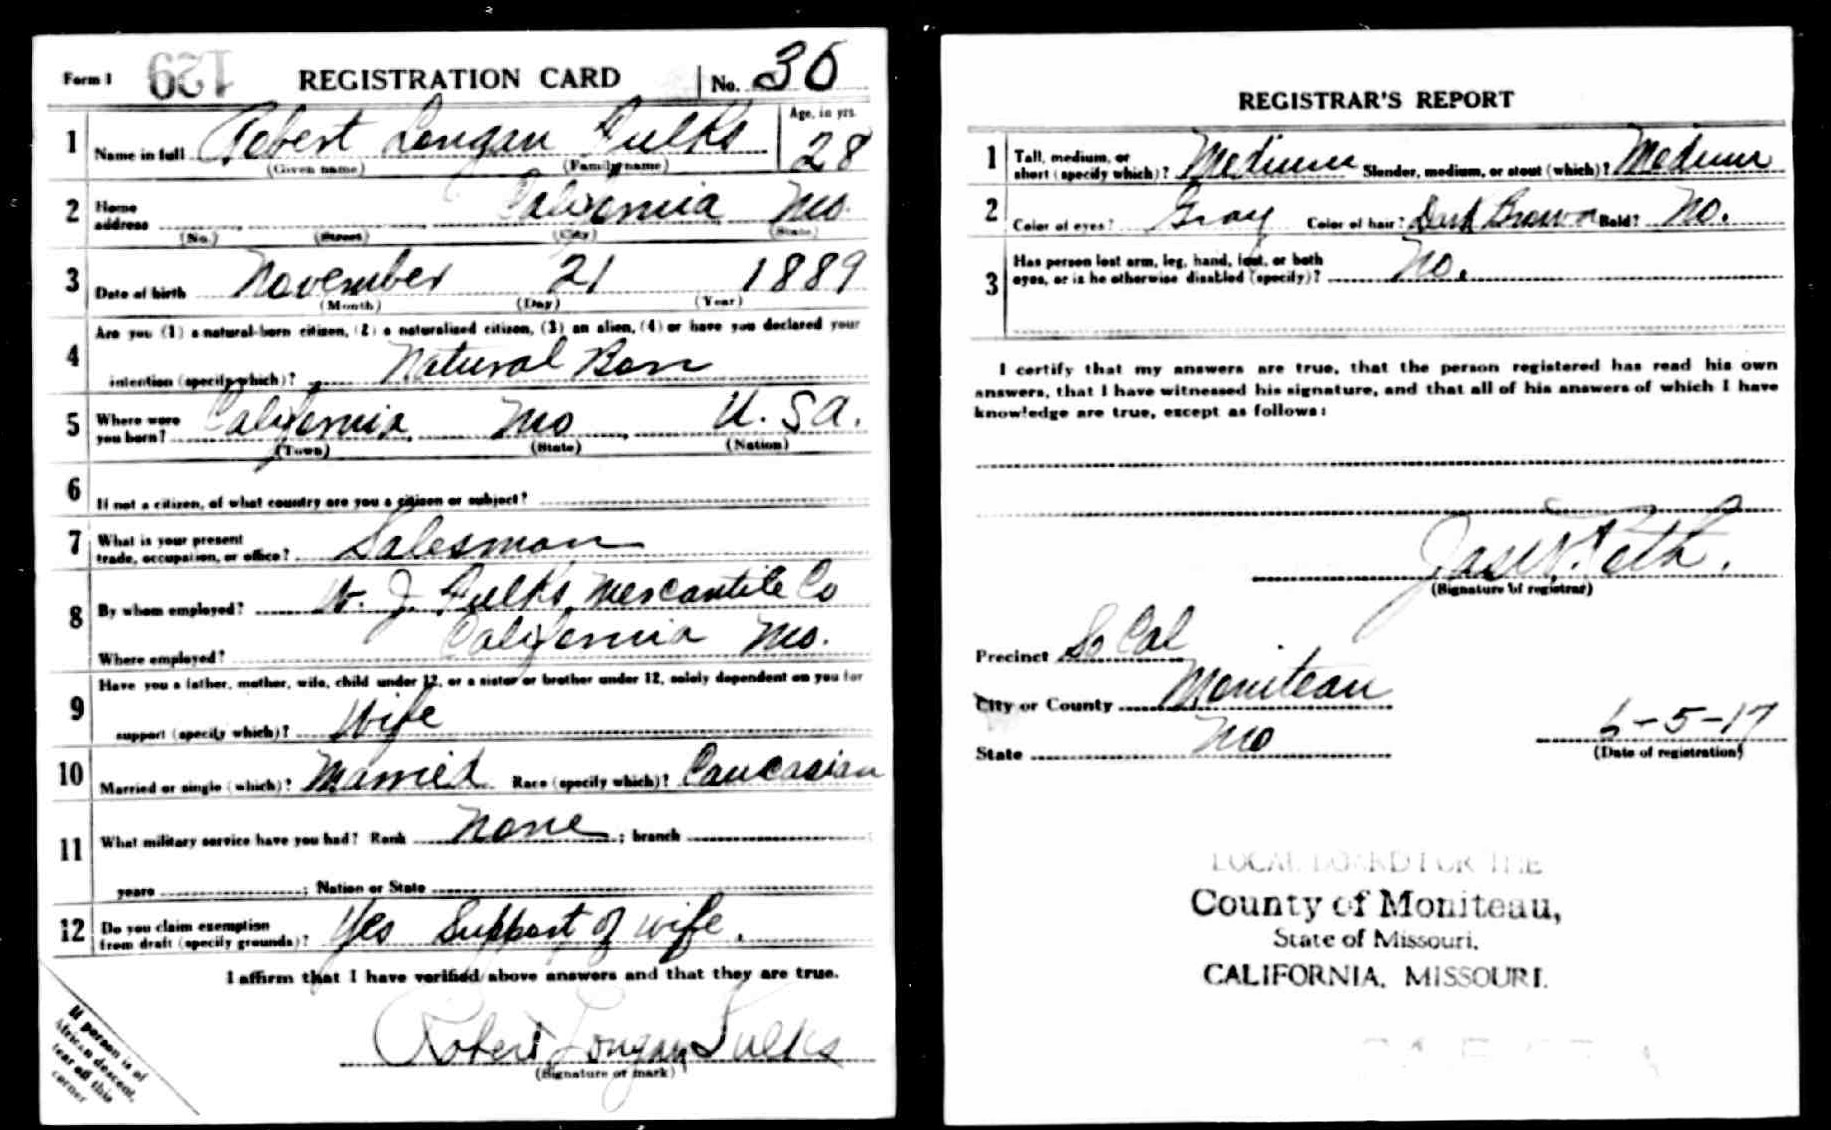 Form 1 129 REGISTRATION CARD No. 36
1 Name in full Robert Longan Fulks Age, in yrs. 28
(Given name) (Family name)
2 Home address California Mo.
(No.) (Street) (City) (State)
3 Date of birth November 21 1889
(Month) (Day) (Year)
4 Are you (1) a natural-born citizen, (2) a naturalized citizen, (3) an alien, (4) or have you declared your
intention (specify which)? Natural Born
5 Where were you born? California, Mo, U.S.A.
(Town) (State) (Nation)
6 If not a citizen, of what country are you a citizen or subject?
7 What is your present trade, occupation, or office? Salesman
8 By whom employed? W. J. Fulks Mercantile Co
Where employed? California Mo.
9 Have you a father, mother, wife, child under 12, or a sister or brother under 12, solely dependent on you for
support (specify which)? Wife
10 Married or single (which)? Married Race (specify which)? Caucasian
11 What military service have you had? Rank None ; branch
years ; Nation or State
12 Do you claim exemption from draft (specify grounds)? Yes Support of wife.
I affirm that I have verified above answers and that they are true.
Robert Longan Fulks
(Signature or mark)
If person is of
African descent,
tear off this
corner
REGISTRAR'S REPORT
1 Tall, medium, or short (specify which)? Medium Slender, medium, or stout (which)? Medium
2 Color of eyes? Gray Color of hair? Dark Brown Bald? No.
3 Has person lost arm, leg, hand, foot, or both
eyes, or is he otherwise disabled (specify)? No.
I certify that my answers are true, that the person registered has read his own
answers, that I have witnessed his signature, and that all of his answers of which I have
knowledge are true, except as follows:
(Signature of registrar)
Precinct So Cal
City or County Moniteau
State Mo 6-5-17
(Date of registration)
LOCAL BOARD FOR THE
County of Moniteau,
State of Missouri,
CALIFORNIA, MISSOURI.